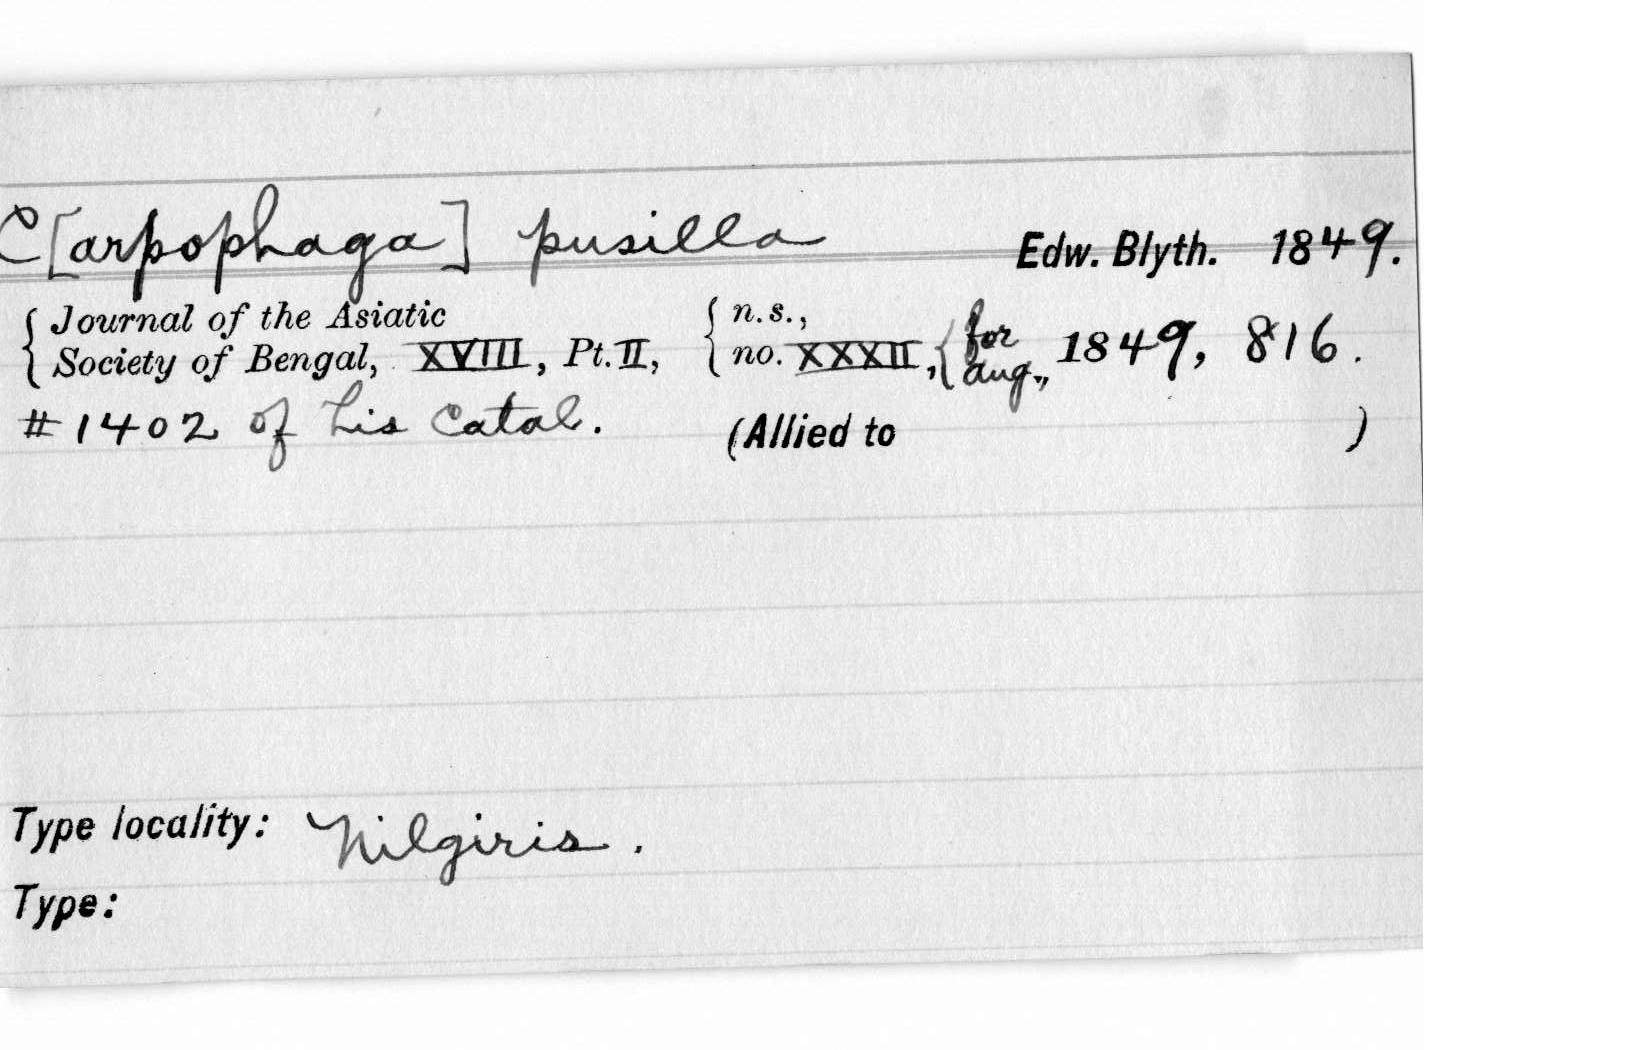 C[arpophaga] pusilla Edw. Blyth. 1849.
{ Journal of the Asiatic { n.s., { for
Society of Bengal, XVIII, Pt. II, no. XXXII, aug., 1849, 816.
#1402 of his Catal. (Allied to )
Type locality: Nilgiris.
Type: